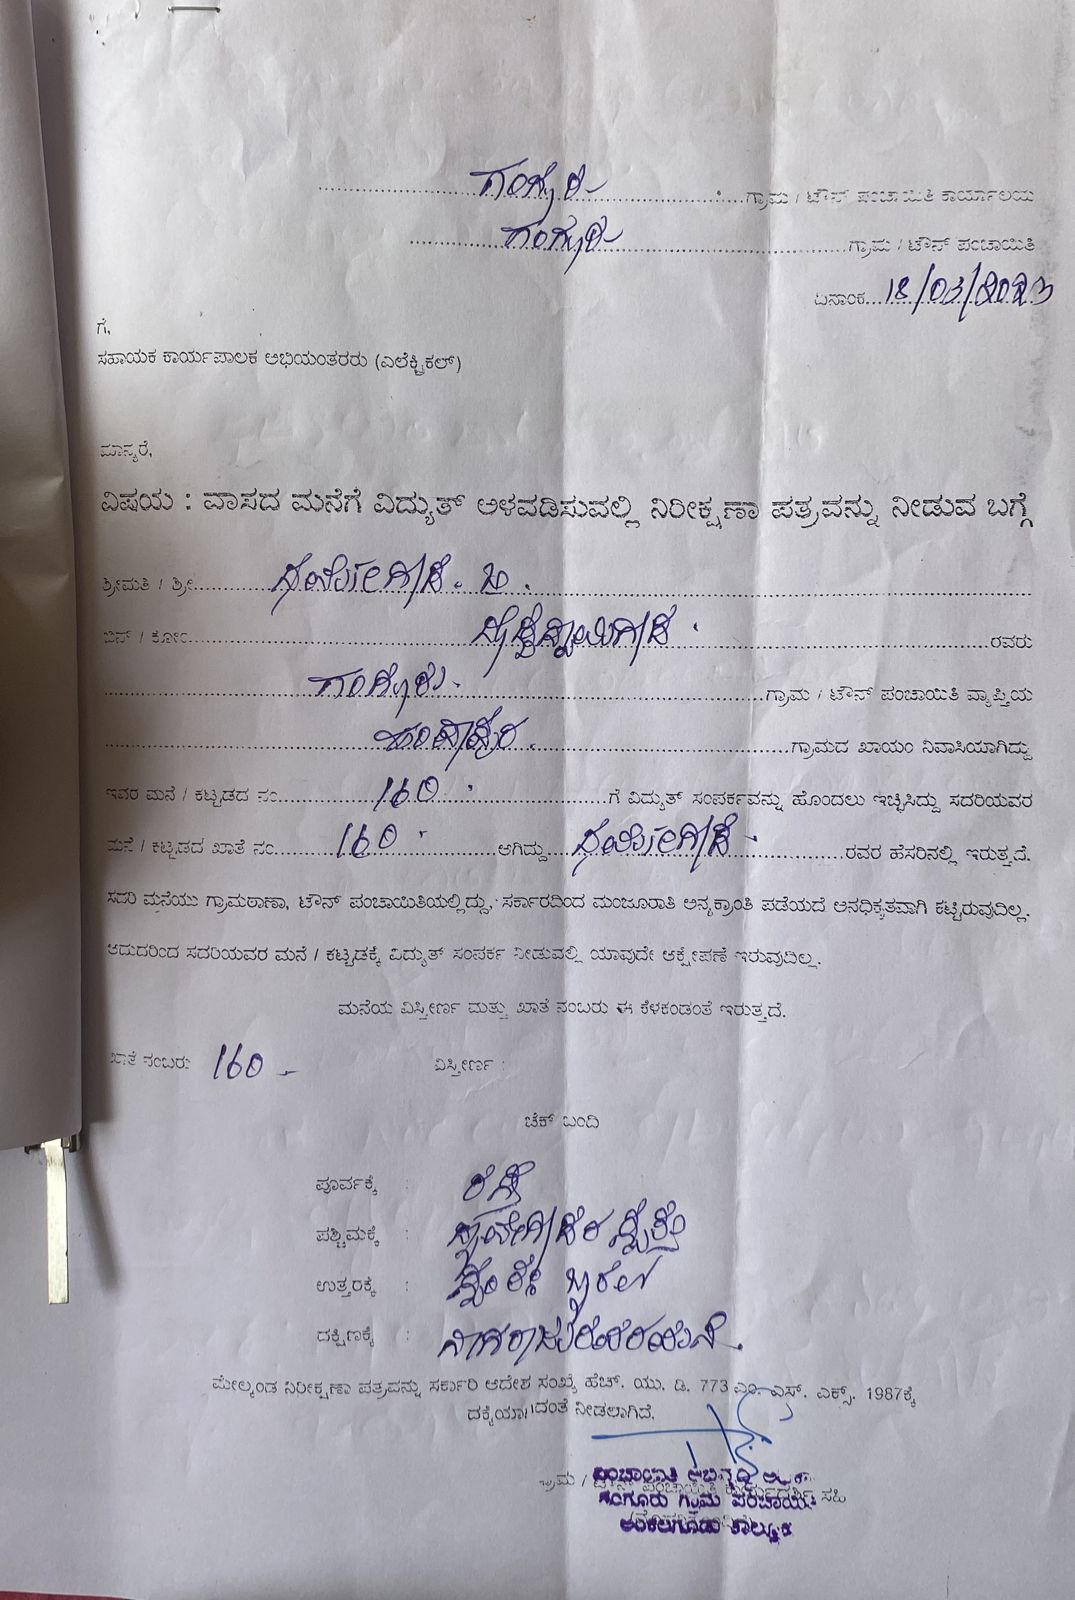 ಗಂಗೂರ ಗ್ರಾಮ / ಟೌನ್ ಪಂಚಾಯಿತಿ ಕಾರ್ಯಾಲಯ
ಗಂಗೂರ ಗ್ರಾಮ / ಟೌನ್ ಪಂಚಾಯಿತಿ
ದಿನಾಂಕ 18/03/2023
ಗೆ,
ಸಹಾಯಕ ಕಾರ್ಯಪಾಲಕ ಅಭಿಯಂತರರು (ಎಲೆಕ್ಟ್ರಿಕಲ್)
ಮಾನ್ಯರೆ,
ವಿಷಯ : ವಾಸದ ಮನೆಗೆ ವಿದ್ಯುತ್ ಅಳವಡಿಸುವಲ್ಲಿ ನಿರೀಕ್ಷಣಾ ಪತ್ರವನ್ನು ನೀಡುವ ಬಗ್ಗೆ
ಶ್ರೀಮತಿ / ಶ್ರೀ
ಬಿನ್ / ಕೋಂ ರವರು
ಗಂಗೂರು ಗ್ರಾಮ / ಟೌನ್ ಪಂಚಾಯಿತಿ ವ್ಯಾಪ್ತಿಯ
ಗ್ರಾಮದ ಖಾಯಂ ನಿವಾಸಿಯಾಗಿದ್ದು
ಇವರ ಮನೆ / ಕಟ್ಟಡದ ನಂ 160 ಗೆ ವಿದ್ಯುತ್ ಸಂಪರ್ಕವನ್ನು ಹೊಂದಲು ಇಚ್ಛಿಸಿದ್ದು ಸದರಿಯವರ
ಮನೆ / ಕಟ್ಟಡದ ಖಾತೆ ನಂ 160 ಆಗಿದ್ದು ರವರ ಹೆಸರಿನಲ್ಲಿ ಇರುತ್ತದೆ.
ಸದರಿ ಮನೆಯು ಗ್ರಾಮಠಾಣಾ, ಟೌನ್ ಪಂಚಾಯಿತಿಯಲ್ಲಿದ್ದು, ಸರ್ಕಾರದಿಂದ ಮಂಜೂರಾತಿ ಅನ್ಯಕ್ರಾಂತಿ ಪಡೆಯದೆ ಅನಧಿಕೃತವಾಗಿ ಕಟ್ಟಿರುವುದಿಲ್ಲ.
ಆದುದರಿಂದ ಸದರಿಯವರ ಮನೆ / ಕಟ್ಟಡಕ್ಕೆ ವಿದ್ಯುತ್ ಸಂಪರ್ಕ ನೀಡುವಲ್ಲಿ ಯಾವುದೇ ಆಕ್ಷೇಪಣೆ ಇರುವುದಿಲ್ಲ.
ಮನೆಯ ವಿಸ್ತೀರ್ಣ ಮತ್ತು ಖಾತೆ ನಂಬರು ಈ ಕೆಳಕಂಡಂತೆ ಇರುತ್ತದೆ.
ಖಾತೆ ನಂಬರು 160 ವಿಸ್ತೀರ್ಣ :
ಚೆಕ್ ಬಂದಿ
ಪೂರ್ವಕ್ಕೆ : ರಸ್ತೆ
ಪಶ್ಚಿಮಕ್ಕೆ :
ಉತ್ತರಕ್ಕೆ :
ದಕ್ಷಿಣಕ್ಕೆ :
ಮೇಲ್ಕಂಡ ನಿರೀಕ್ಷಣಾ ಪತ್ರವನ್ನು ಸರ್ಕಾರಿ ಆದೇಶ ಸಂಖ್ಯೆ ಹೆಚ್. ಯು. ಡಿ. 773 ಎಂ. ಎಸ್. ಎಕ್ಸ್. 1987ಕ್ಕೆ
ನೀಡಲಾಗಿದೆ.
ಗ್ರಾಮ / ಟೌನ್ ಪಂಚಾಯಿತಿ ಕಾರ್ಯದರ್ಶಿ ಸಹಿ
ಪಂಚಾಯಿತಿ ಅಭಿವೃದ್ಧಿ
ಗಂಗೂರು ಗ್ರಾಮ ಪಂಚಾಯಿತಿ
ಅರಕಲಗೂಡು ತಾಲ್ಲೂಕು